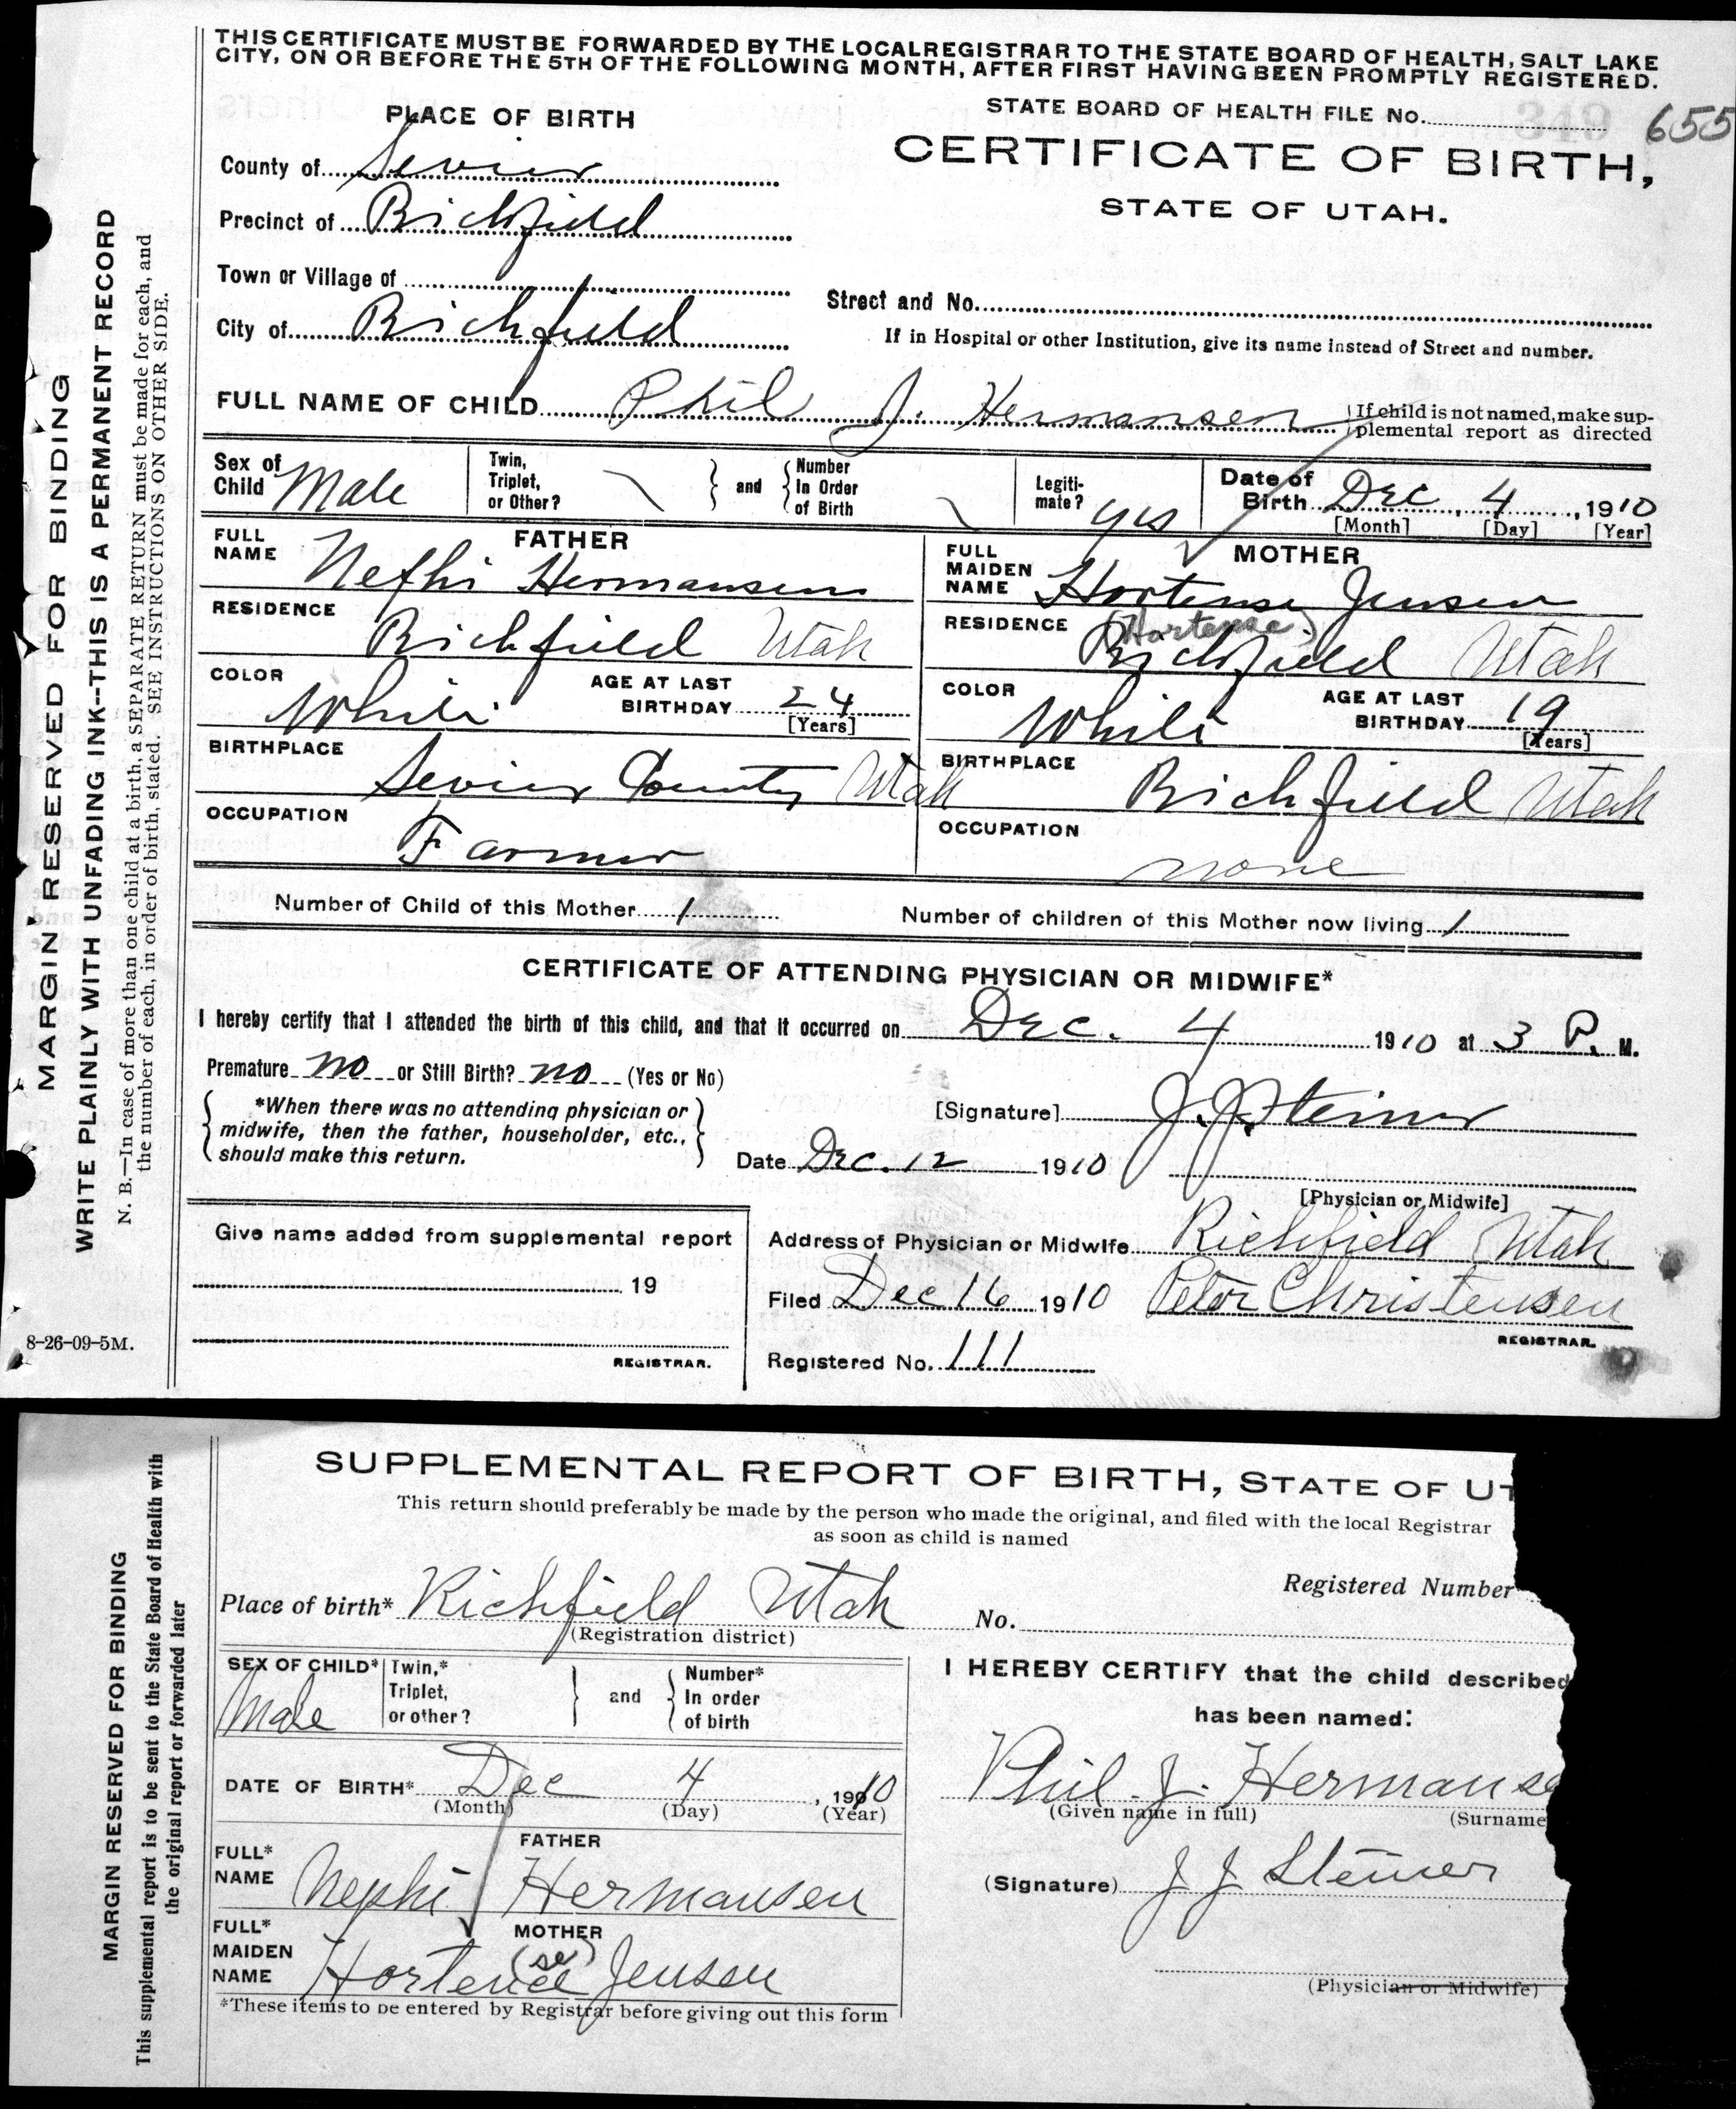 THIS CERTIFICATE MUST BE FORWARDED BY THE LOCAL REGISTRAR TO THE STATE BOARD OF HEALTH, SALT LAKE
CITY, ON OR BEFORE THE 5TH OF THE FOLLOWING MONTH, AFTER FIRST HAVING BEEN PROMPTLY REGISTERED.
STATE BOARD OF HEALTH FILE No. 655
PLACE OF BIRTH
CERTIFICATE OF BIRTH,
STATE OF UTAH.
County of Sevier
Precinct of Richfield
Town or Village of
Street and No.
City of Richfield
If in Hospital or other Institution, give its name instead of Street and number.
FULL NAME OF CHILD Phil J. Hermansen
If child is not named, make sup-
plemental report as directed
Sex of Child Male
Twin, Triplet, or Other?
and
Number In Order of Birth
Legiti-
mate? yes
Date of Birth Dec. 4, 1910
[Month] [Day] [Year]
FATHER
FULL NAME Nephi Hermansen
RESIDENCE Richfield Utah
COLOR White
AGE AT LAST BIRTHDAY 24
[Years]
BIRTHPLACE Sevier County Utah
OCCUPATION Farmer
MOTHER
FULL MAIDEN NAME Hortense Jensen
(Hortense)
RESIDENCE Richfield Utah
COLOR White
AGE AT LAST BIRTHDAY 19
[Years]
BIRTHPLACE Richfield Utah
OCCUPATION none
Number of Child of this Mother 1
Number of children of this Mother now living 1
CERTIFICATE OF ATTENDING PHYSICIAN OR MIDWIFE*
I hereby certify that I attended the birth of this child, and that it occurred on Dec. 4 1910 at 3 P. M.
Premature no or Still Birth? no (Yes or No)
*When there was no attending physician or
midwife, then the father, householder, etc.,
should make this return.
[Signature] J. J. Steiner
Date Dec. 12 1910
[Physician or Midwife]
Give name added from supplemental report
19
REGISTRAR.
Address of Physician or Midwife Richfield Utah
Filed Dec 16 1910 Peter Christensen
REGISTRAR.
Registered No. 111
MARGIN RESERVED FOR BINDING
WRITE PLAINLY WITH UNFADING INK--THIS IS A PERMANENT RECORD
N. B.—In case of more than one child at a birth, a SEPARATE RETURN must be made for each, and
the number of each, in order of birth, stated. SEE INSTRUCTIONS ON OTHER SIDE.
8-26-09-5M.
SUPPLEMENTAL REPORT OF BIRTH, STATE OF UT
This return should preferably be made by the person who made the original, and filed with the local Registrar
as soon as child is named
Registered Number
Place of birth* Richfield Utah No.
(Registration district)
SEX OF CHILD* Male
Twin,* Triplet, or other?
and
Number* In order of birth
DATE OF BIRTH* Dec 4, 1910
(Month) (Day) (Year)
FATHER
FULL* NAME Nephi Hermansen
MOTHER
FULL* MAIDEN NAME Hortence (se) Jensen
*These items to be entered by Registrar before giving out this form
I HEREBY CERTIFY that the child described
has been named:
Phil J. Hermanse
(Given name in full) (Surname
(Signature) J J Steiner
(Physician or Midwife)
MARGIN RESERVED FOR BINDING
This supplemental report is to be sent to the State Board of Health with
the original report or forwarded later